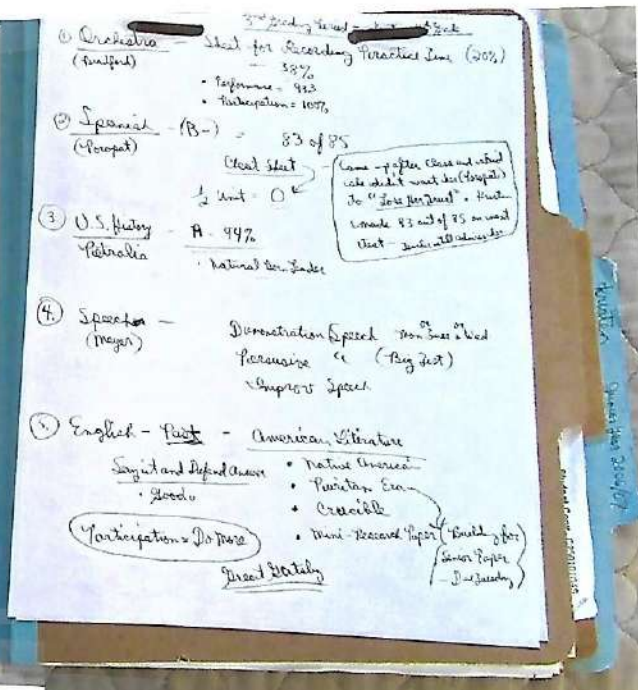 3rd Grading Period
① Orchestra - Sheet for Recording Practice Time (20%)
(Bradford) 38%
• Performance = 93.3
• Participation = 100%
② Spanish - (B-) = 83 of 85
(Poropat)
Cheat Sheet
½ Unit = 0
Came up after class and
she didn't want her (Poropat)
to "Lose Her Trust"
made 83 out of 85 on next
test - still
③ U.S. History - A - 94%
Petralia
• Natural Born Leader
④ Speech -
(Mayer)
Demonstration Speech Mon or Tues or Wed
Persuasive " (Big Test)
• Improv Speech
5. English - Past - American Literature
Say it and Defend Answer
• Good
• Native American
• Puritan Era
• Crucible
• Mini-Research Paper (Building for
Senior Paper
- Due Tuesday)
Participation = Do More
Great Gatsby
2006/07